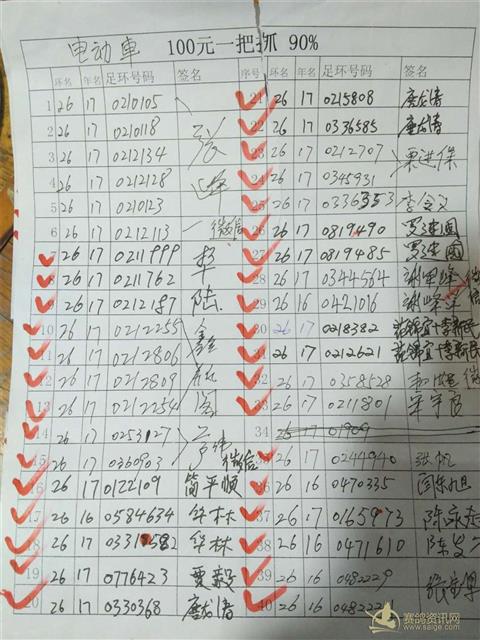 电动車 100元一把抓 90%
环名 年名 足环号码 签名 序号 环名 年名 足环号码 签名
1 26 17 0210105 21 26 17 0215808 唐龙清
2 26 17 0210118 张 22 26 17 0336585 唐龙清
3 26 17 0212134 23 26 17 0212707 栗进保
4 26 17 0212128 峰 24 26 17 0345931
5 26 17 0210123 25 26 17 0336353 李会文
6 26 17 0212113 微信 26 26 17 0819490 罗建国
7 26 17 0211999 27 26 17 0819485 罗建国
8 26 17 0211762 28 26 17 0344564
9 26 17 0212187 陆 29 26 16 0421016
10 26 17 0212255 鑫 30 26 17 0218382 范锦宜+李新民
11 26 17 0212806 31 26 17 0212621 范锦宜+李新民
12 26 17 0212809 32 26 17 0358528
13 26 17 0212254 阁 33 26 17 0211801
14 26 17 0253127 34 26 17 01909
15 26 17 0360903 微信 35 26 17 0244940 张帆
16 26 17 0122109 简平顺 36 26 16 0470335 闫东旭
17 26 16 0584634 华林 37 26 17 0165973
18 26 16 0331582 华林 38 26 16 0471610
19 26 17 0776423 贾毅 39 26 16 0482229
20 26 17 0330368 唐龙清 40 26 16 048222
赛鸽资讯网
www.saige.com